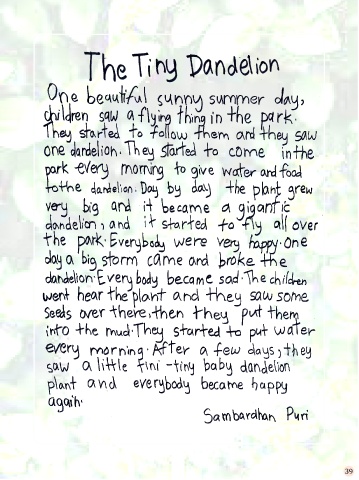 The Tiny Dandelion
One beautiful sunny summer day,
children saw a flying thing in the park.
They started to follow them and they saw
one dandelion. They started to come in the
park every morning to give water and food
to the dandelion. Day by day the plant grew
very big and it became a gigantic
dandelion, and it started to fly all over
the park. Everybody were very happy. One
day a big storm came and broke the
dandelion. Everybody became sad. The children
went hear the plant and they saw some
seeds over there, then they put them
into the mud. They started to put water
every morning. After a few days, they
saw a little tini-tiny baby dandelion
plant and everybody became happy
again.
Sambardhan Puri
39